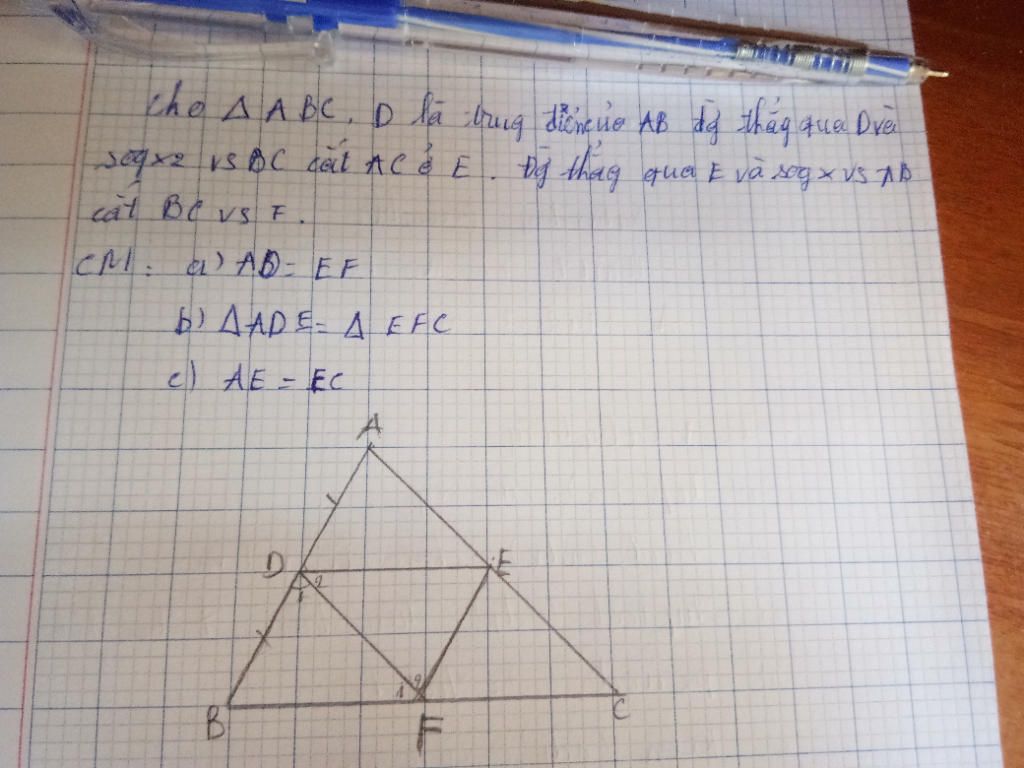 cho Δ ABC. D là trung điểm của AB đg thẳg qua D và
sog x2 vs BC cắt AC ở E. Đg thẳg qua E và sog x vs AB
cắt BC vs F.
CM: a) AD = EF
b) Δ ADE = Δ EFC
c) AE = EC
A
D 2 E
1
1 2
B F C